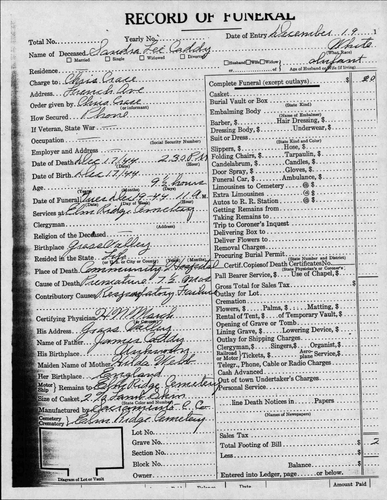 RECORD OF FUNERAL
Total No. Yearly No. Date of Entry December 19
Name of Deceased Sandra Lee Caddy White
(What Race)
Married Single Widowed Divorced Husband Wife Widow of Infant
Residence
Charge to Chris Grace
Address French Ave
Order given by Chris Grace
(or informant)
How Secured Phone
If Veteran, State War
Occupation
(Social Security Number)
Employer and Address
Date of Death Dec 17/44 2:30 P.M.
Date of Birth Dec 17/44
Age 9½ hours
Date of Funeral Tues Dec 19-44 11 A.M.
Services at Elm Ridge Cemetery
Clergyman
Religion of the Deceased
Birthplace Grass Valley
Resided in the State Life
Place of Death Community Hospital
Cause of Death Premature 7½ mos
Contributory Causes Respiratory Failure
Certifying Physician
His Address Grass Valley
Name of Father James Caddy
His Birthplace
Maiden Name of Mother
Her Birthplace England
Motor Ship Remains to Elm Ridge Cemetery
Size of Casket
(State Color and Number)
Manufactured by Sacramento C. Co.
Cemetery
Crematory Elm Ridge Cemetery
Lot No.
Grave No.
Section No.
Block No.
Owner
Diagram of Lot or Vault
Complete Funeral (except outlays) $ 20
Casket
Burial Vault or Box
(State Kind)
Embalming Body
(Name of Embalmer)
Barber, $ Hair Dressing, $
Dressing Body, $ Underwear, $
Suit or Dress
(State Kind and Color)
Slippers, $ Hose, $
Folding Chairs, $ Tarpaulin, $
Candelabrum, $ Candles, $
Door Spray, $ Gloves, $
Funeral Car, $ Ambulance, $
Limousines to Cemetery @ $
Extra Limousines @ $
Autos to R. R. Station @ $
Getting Remains from
Taking Remains to
Trip to Coroner's Inquest
Delivering Box to
Deliver Flowers to
Removal Charges
Procuring Burial Permit
(State Number and District)
Certif. Copies of Death Certificate No.
(State Physician's or Coroner's)
Pall Bearer Service, $ Use of Chapel, $
Gross Total for Sales Tax $
Outlay for Lot
Cremation
Flowers, $ Palms, $ Matting, $
Rental of Tent, $ of Temporary Vault, $
Opening of Grave or Tomb
Lining Grave, $ Lowering Device, $
Outlay for Shipping Charges
Clergyman, $ Singers, $ Organist, $
Railroad
Motor Tickets, $ Aeroplane Service, $
Telep., Phone, Cable or Radio Charges
Cash Advanced
Out of town Undertaker's Charges
Personal Service
line Death Notices in Papers
(Names of Newspapers)
Sales Tax
Total Footing of Bill $ 2
Entered into Ledger, page or below.
Amount Paid